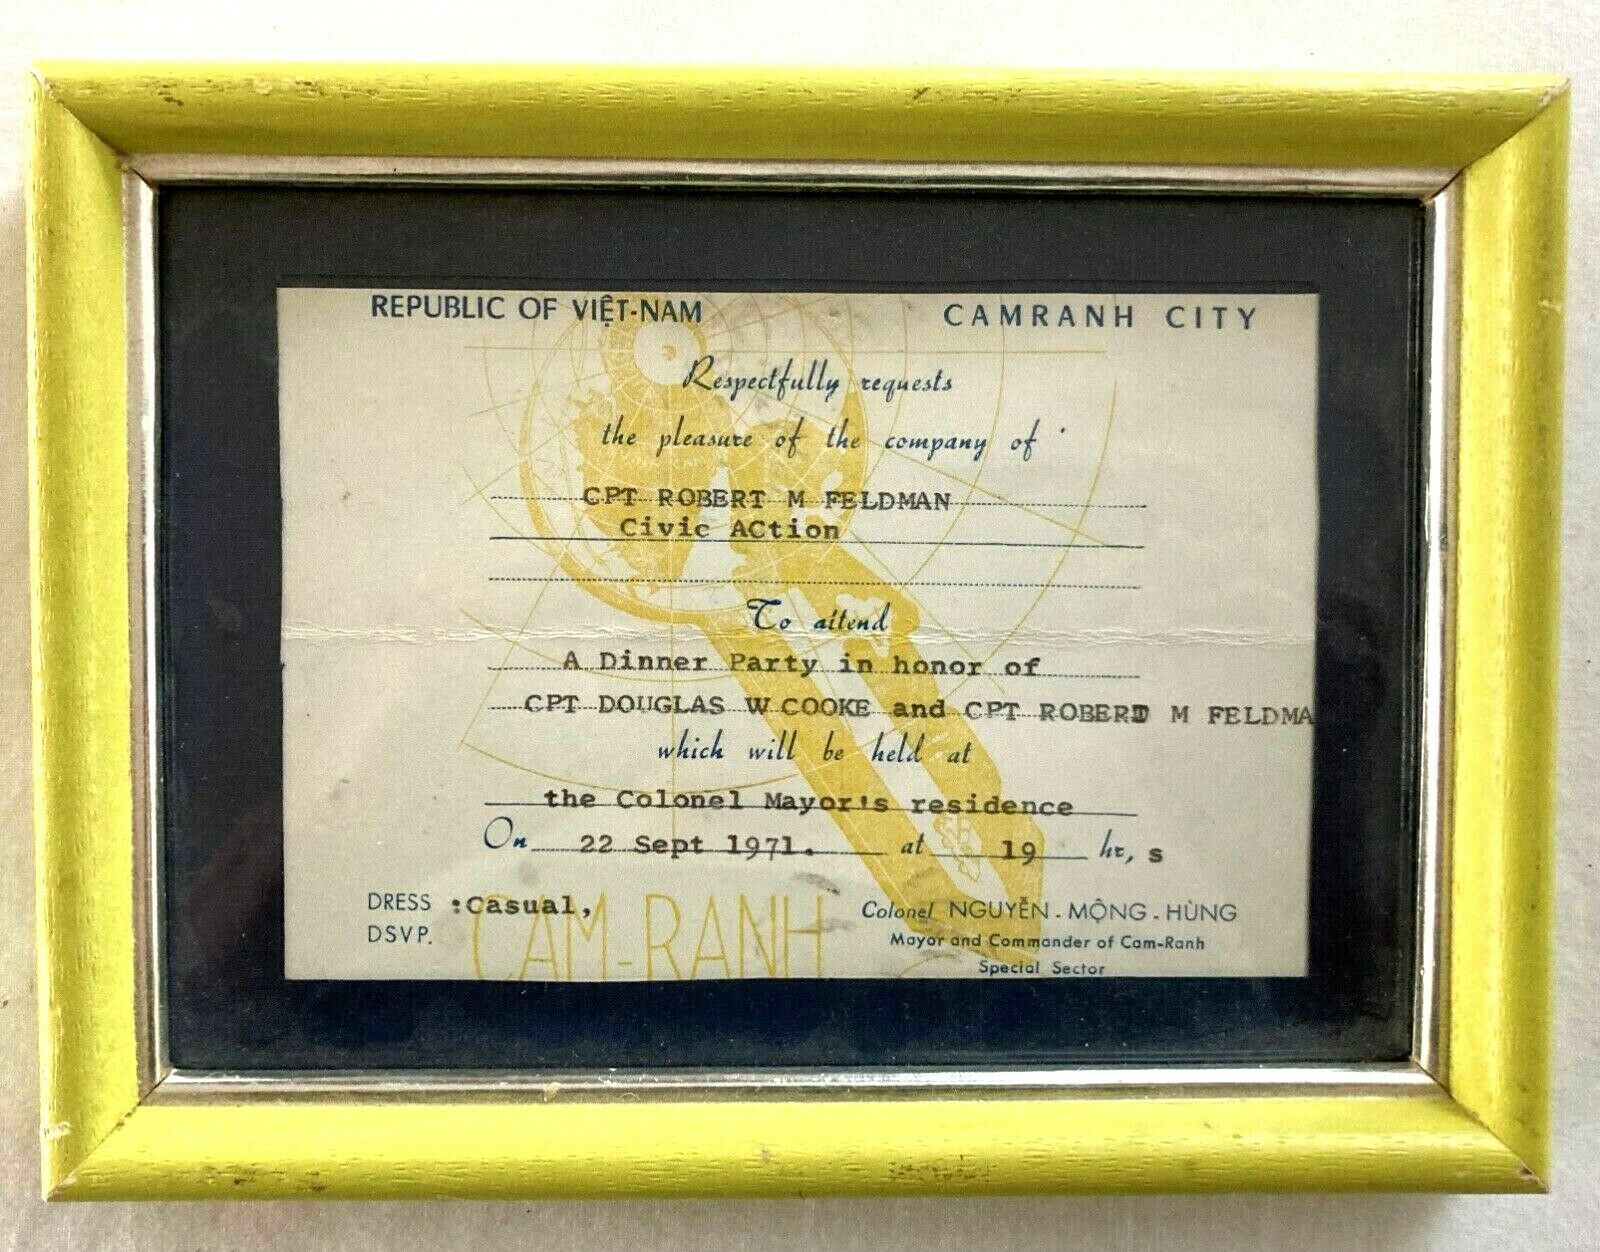 REPUBLIC OF VIỆT-NAM CAMRANH CITY
Respectfully requests
the pleasure of the company of
CPT ROBERT M FELDMAN
Civic ACtion
To attend
A Dinner Party in honor of
CPT DOUGLAS W COOKE and CPT ROBERT M FELDMA
which will be held at
the Colonel Mayor's residence
On 22 Sept 1971. at 19 hr, s
DRESS :Casual,
DSVP.
Colonel NGUYỄN - MỘNG - HÙNG
Mayor and Commander of Cam-Ranh
Special Sector
CAM-RANH